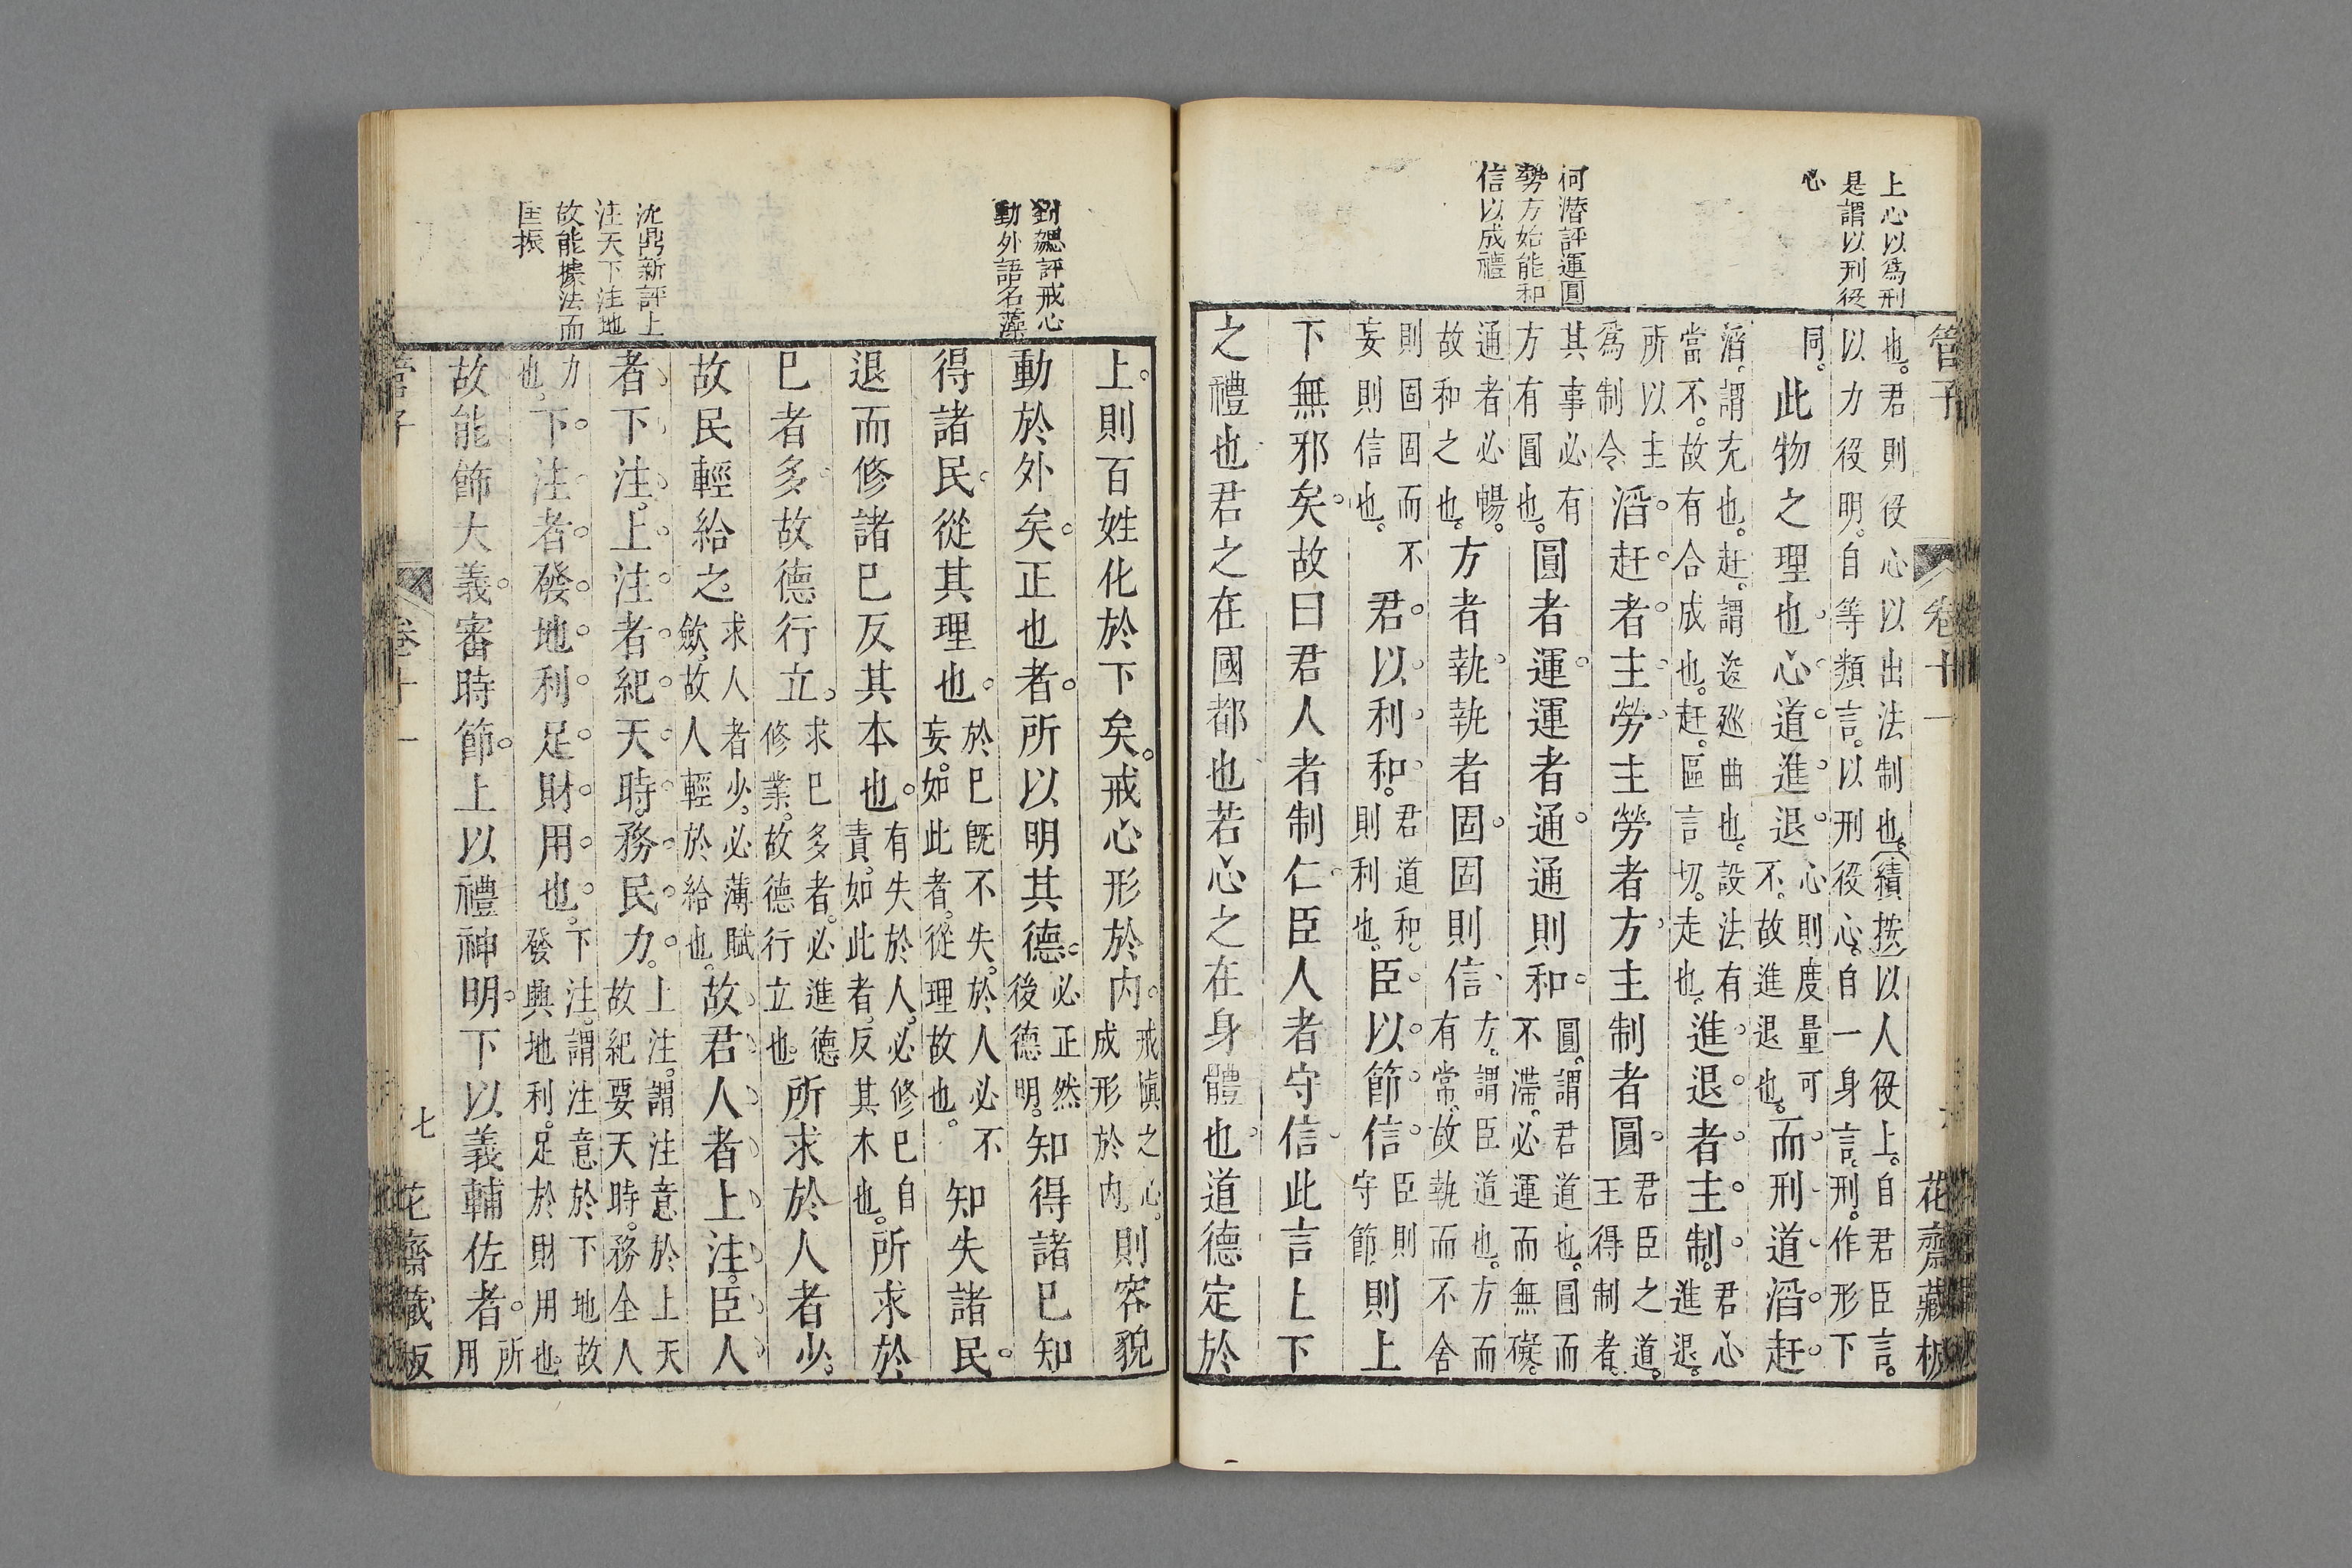 上心以爲刑
是謂以刑役
心
何潜評運圓
勢方始能和
信以成禮
管子 卷十一 花齋藏板
也。君則役心以出法制也。(績按)以人役上。自君臣言。
以力役明。自等類言。以刑役心。自一身言。刑。作形下
同。此物之理也。心道進退。心則度量可
不。故進退也。而刑道滔赶。
滔。謂充也。赶。謂迻𨒪曲也。設法有
當不。故有合成也。赶。區言切。走也。進退者主制。君心
進退。
所以主
爲制令滔赶者主勞主勞者方主制者圓。君臣之道。
王得制者。
其事必有
方有圓也。圓者運運者通通則和。圓。謂君道也。圓而
不滯。必運而無礙。
通者必暢。
故和之也。方者執執者固固則信方。謂臣道也。方而
有常。故執而不舍
則固固而不
妄則信也。君以利和。君道和
則利也。臣以節信。臣則
守節則上
下無邪矣。故曰君人者制仁臣人者守信此言上下
之禮也君之在國都也若心之在身體也道德定於
劉勰評戒心
動外語名藻
沈鼎新評上
注天下注地
故能據法而
匡振
上。則百姓化於下矣。戒心形於内。戒愼之心。
成形於内。則容貌
動於外矣。正也者。所以明其德。必正然
後德明。知得諸已知
得諸民從其理也。於巳旣不失。於人必不
妄。如此者。從理故也。知失諸民。
退而修諸巳反其本也。有失於人。必修巳自
責。如此者。反其木也。所求於
巳者多故德行立。求巳多者。必進德
修業。故德行立也。所求於人者少。
故民輕給之。求人者少。必薄賦
斂。故人輕於給也。故君人者上注。臣人
者下注。上注者紀天時。務民力。上注。謂注意於上天
故紀要天時。務全人
力
也。下注者發地利足財用也。下注。謂注意於下地故
發興地利。足於財用也。
故能節大義。審時節。上以禮神明。下以義輔佐者。所
用
管子 卷十一 七 花齋藏板